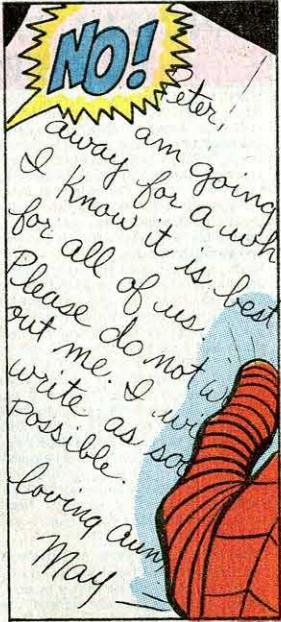 NO!
Peter,
am going
away for a wh
I know it is best
for all of us.
Please do not w
out me. I wi
write as soo
possible.
loving aun
May